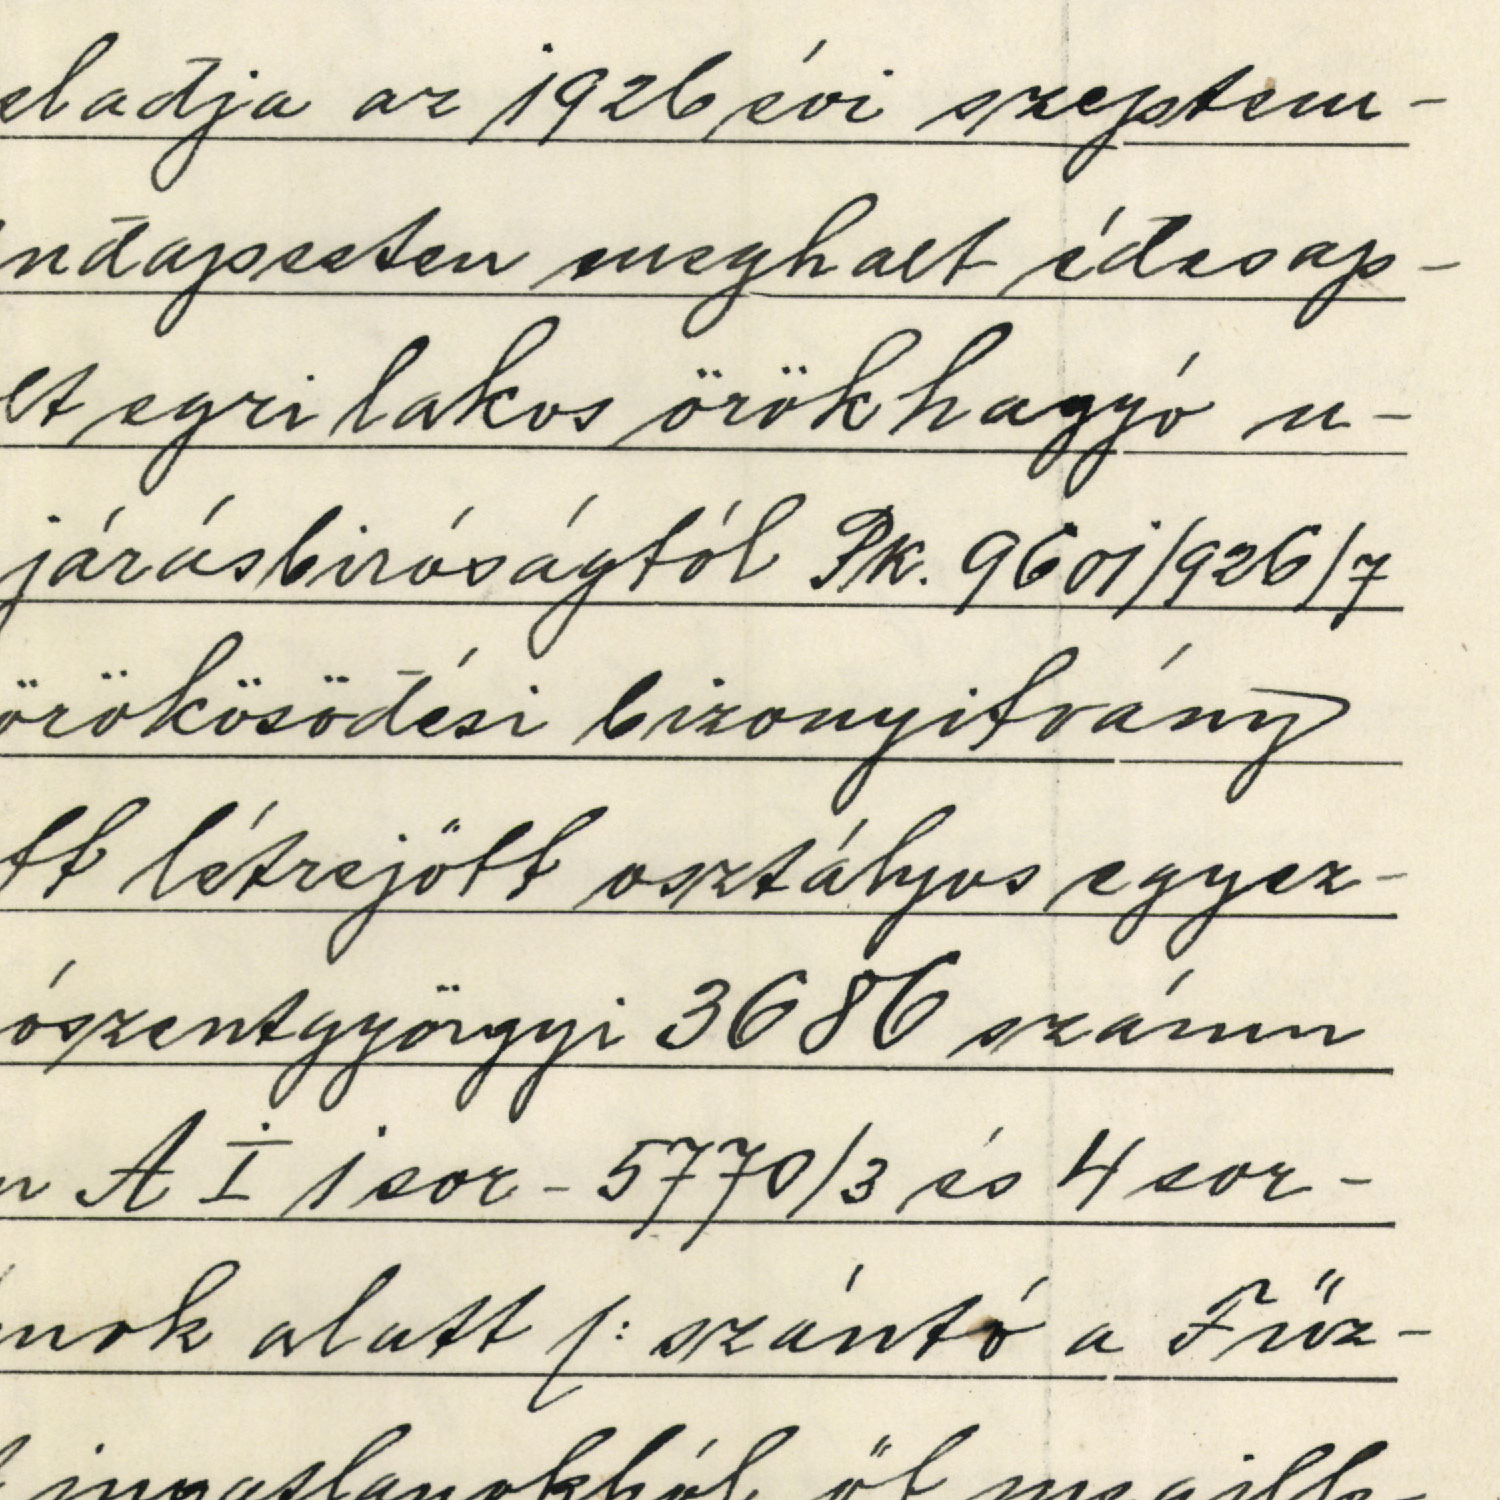 eladja az 1926 évi szeptem-
udapesten meghalt édesap-
lt egri lakos örökhagyó u-
járásbiróságtól Pk. 9601/926/7
örökösödési bizonyitvány
tt létrejött osztályos egyez-
ószentgyörgyi 3686 számu
n A I 1 sor - 5770/3 és 4 sor-
nok alatt /: szántó a Fűz-
ingatlanokból őt megille-